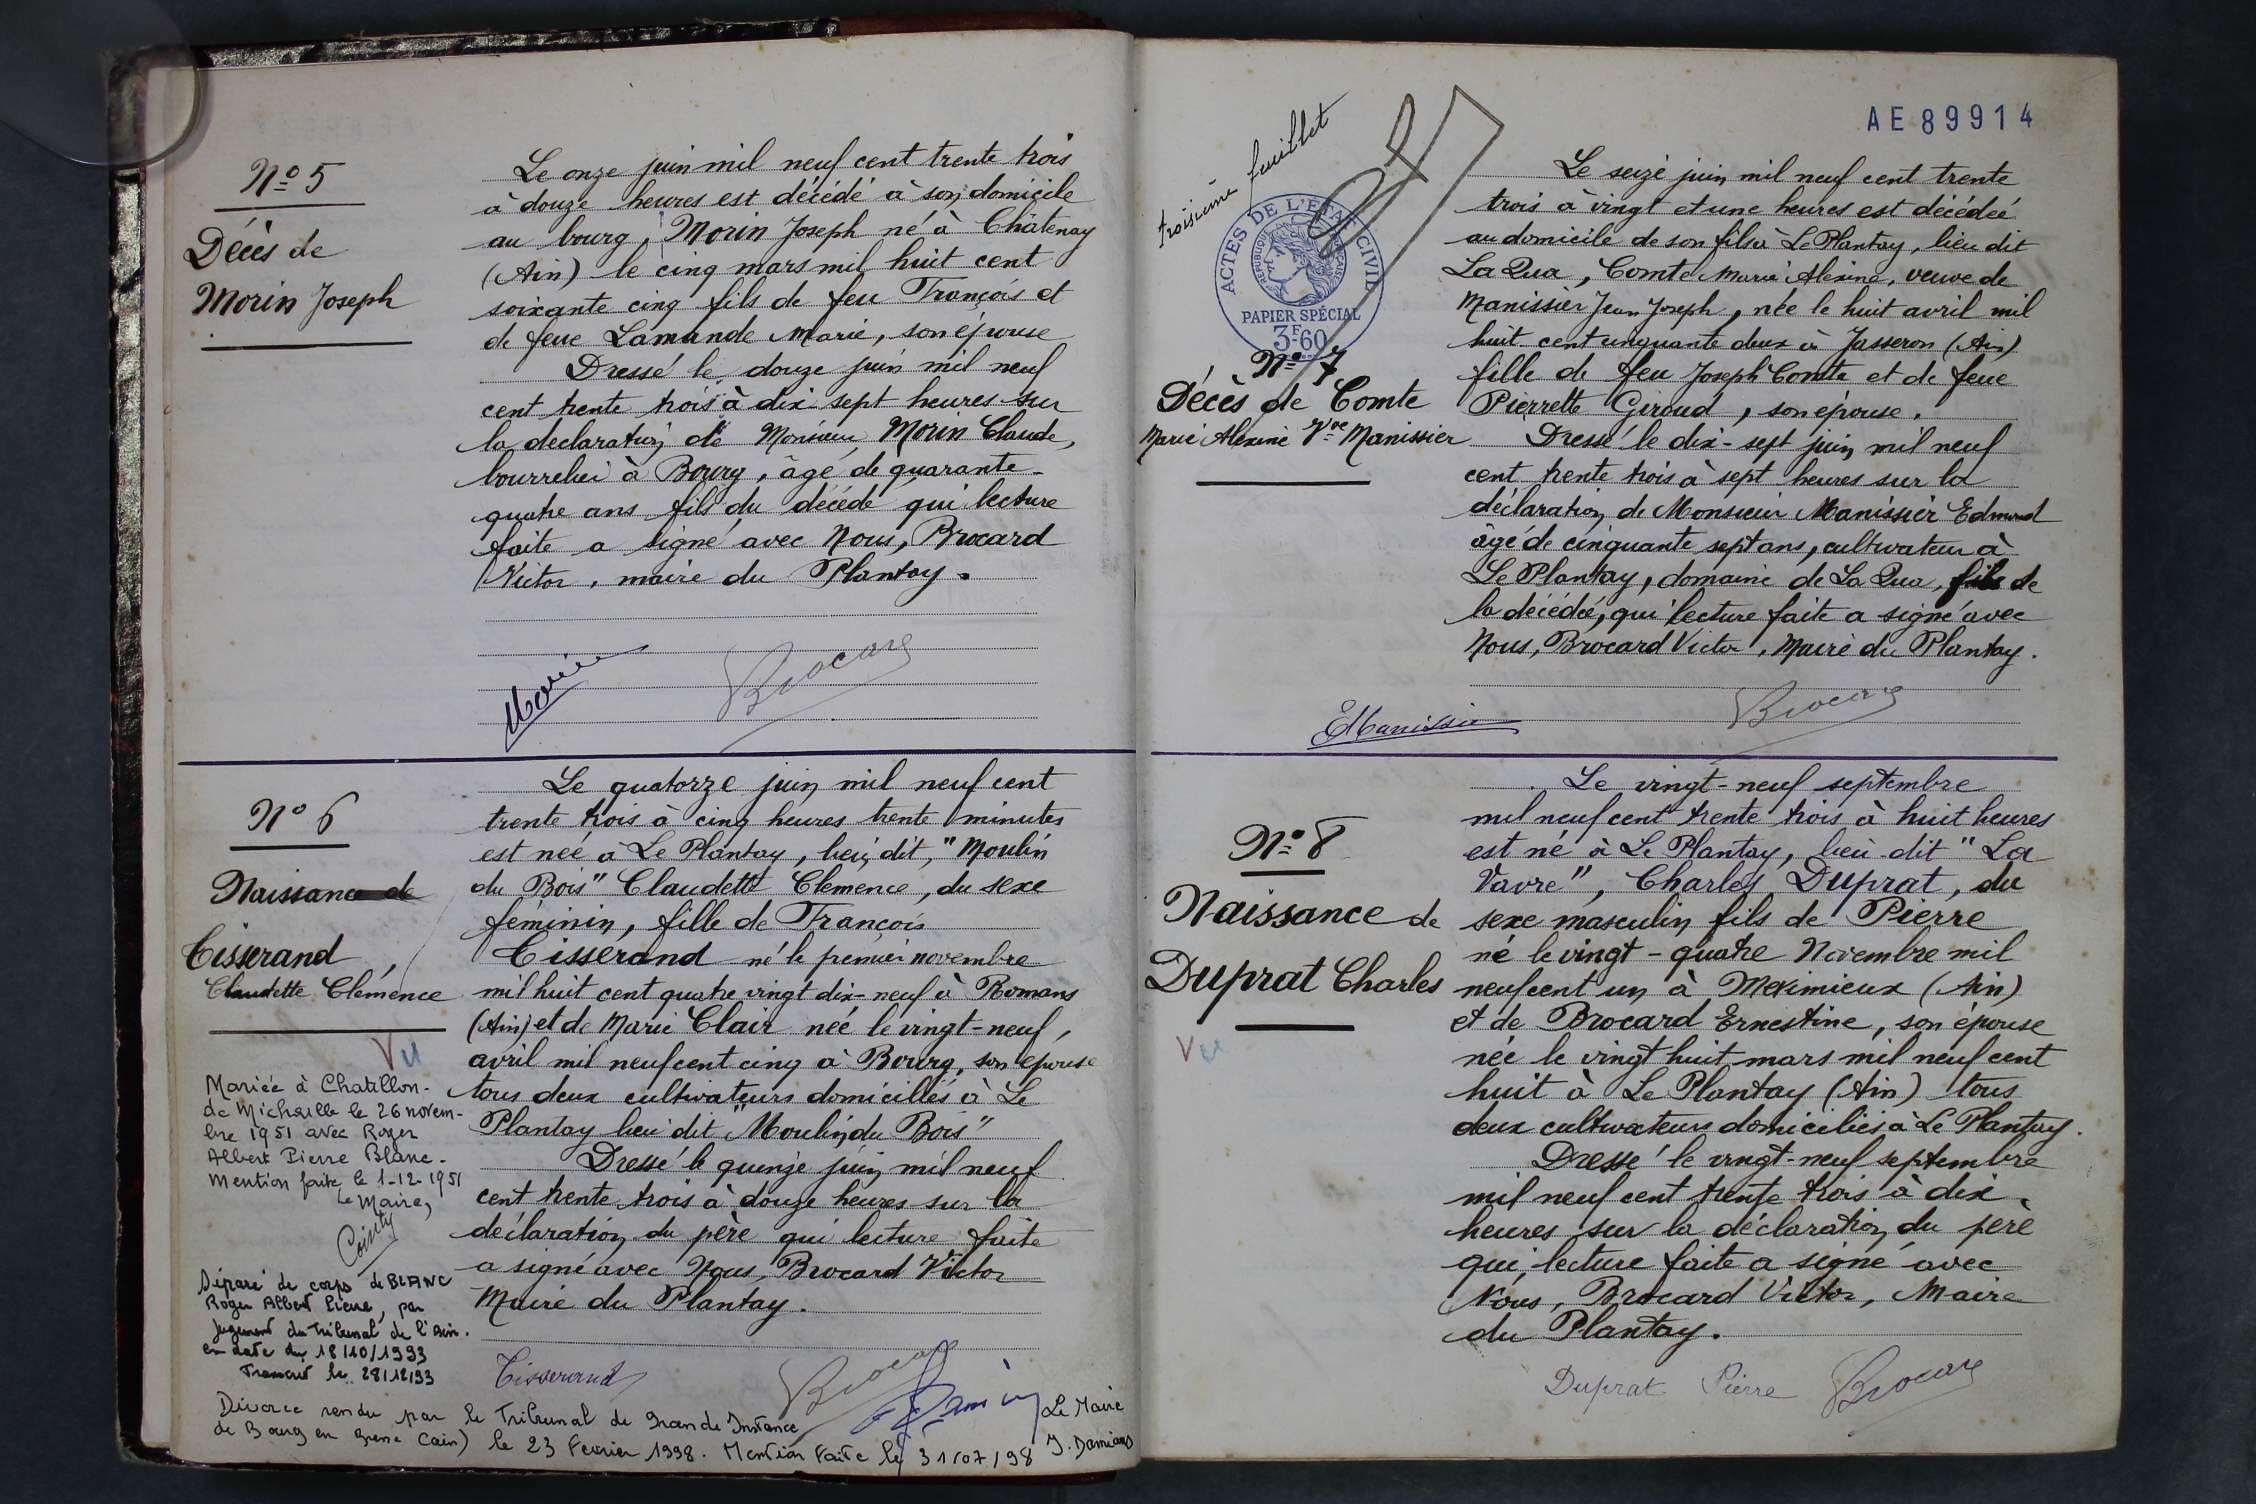 Nº 5
Décès de
Morin Joseph
Le onze juin mil neuf cent trente trois
à douze heures est décédé à son domicile
au bourg, Morin Joseph né à Châtenay
(Ain) le cinq mars mil huit cent
soixante cinq fils de feu François et
de feue Lamande Marie, son épouse
Dressé le douze juin mil neuf
cent trente trois à dix sept heures sur
la declaration de Monsieur Morin Claude,
bourrelier à Bourg, âgé de quarante-
quatre ans fils du décédé qui lecture
faite a signé avec Nous, Brocard
Victor, maire du Plantay.
Morin
Brocard
Nº 6
Naissance de
Tisserand
Claudette Clémence
Vu
Mariée à Chatillon-
de Michaille le 26 novem-
bre 1951 avec Roger
Albert Pierre Blanc.
Mention faite le 1-12-1951
Le Maire,
Séparé de corps de BLANC
Roger Albert Pierre, par
jugement du Tribunal de l'Ain.
en date du 18/10/1993
Transcrit le 28/12/93
Le quatorze juin mil neuf cent
trente trois à cinq heures trente minutes
est née à Le Plantay, lieu dit, "Moulin
du Bois" Claudette Clemence, du sexe
féminin, fille de François
Tisserand né le premier novembre
mil huit cent quatre vingt dix-neuf à Romans
(Ain) et de Marie Clair née le vingt-neuf,
avril mil neuf cent cinq à Bourg, son épouse
tous deux cultivateurs domiciliés à Le
Plantay lieu dit "Moulin du Bois"
Dressé le quinze juin mil neuf
cent trente trois à douze heures sur la
déclaration du père qui lecture faite
a signé avec Nous, Brocard Victor
Maire du Plantay.
Tisserand
Brocard
Divorce rendu par le Tribunal de Grande Instance
de Bourg en Bresse (Ain) le 23 Fevrier 1998. Mention Faite le 31/07/98
Le Maire
J. Damians
troisième feuillet
AE 89914
ACTES DE L'ETAT CIVIL
REPUBLIQUE FRANÇAISE
PAPIER SPÉCIAL
3F60
Nº 7
Décès de Comte
Marie Alexine Vve Manissier
Le seize juin mil neuf cent trente
trois à vingt et une heures est décédée
au domicile de son fils à Le Plantay, lieu dit
La Qua, Comte Marie Alexine, veuve de
Manissier Jean Joseph, née le huit avril mil
huit cent cinquante deux à Jasseron (Ain)
fille de feu Joseph Comte et de feue
Pierrette Giroud, son épouse.
Dressé le dix-sept juin mil neuf
cent trente trois à sept heures sur la
déclaration de Monsieur Manissier Edmond
âgé de cinquante sept ans, cultivateur à
Le Plantay, domaine de La Qua, fils de
la décédée, qui lecture faite a signé avec
Nous, Brocard Victor, Maire du Plantay.
E Manissier
Brocard
Nº 8
Naissance de
Duprat Charles
Vu
Le vingt-neuf septembre
mil neuf cent trente trois à huit heures
est né à Le Plantay, lieu-dit "La
Vavre", Charles Duprat, du
sexe masculin fils de Pierre
né le vingt-quatre Novembre mil
neuf cent un à Meximieux (Ain)
et de Brocard Ernestine, son épouse
née le vingt huit mars mil neuf cent
huit à Le Plantay (Ain) tous
deux cultivateurs domiciliés à Le Plantay.
Dressé le vingt-neuf septembre
mil neuf cent trente trois à dix
heures sur la déclaration du père
qui lecture faite a signé avec
Nous, Brocard Victor, Maire
du Plantay.
Duprat Pierre
Brocard